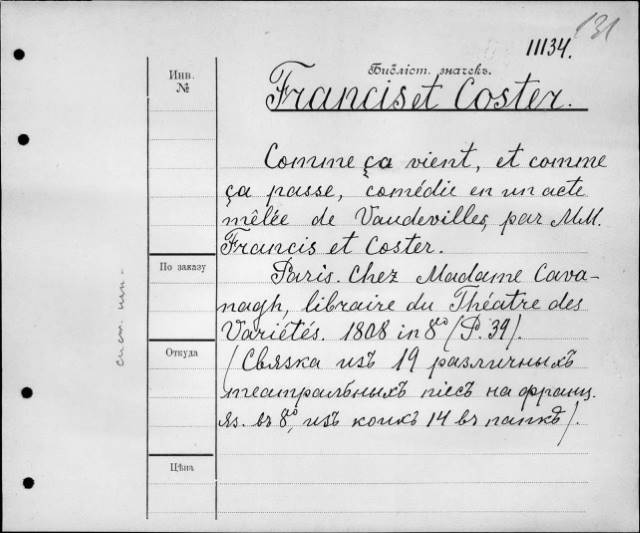 131
11134.
Инв.
№
Библіот. значекъ.
Francis et Coster.
Comme ça vient, et comme
ça passe, comédie en un acte
mêlée de Vaudevilles, par MM.
Francis et Coster.
По заказу
Paris. Chez Madame Cava-
nagh, libraire du Théatre des
Variétés. 1808 in 8º (P. 39).
Откуда
(Связка изъ 19 различныхъ
театральныхъ піес на франц.
яз. въ 8º, изъ коихъ 14 въ папкѣ).
Цѣна